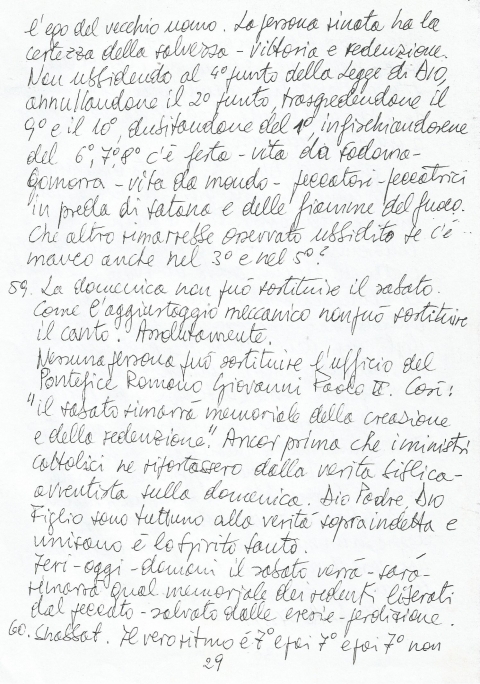 l'ego del vecchio uomo. La persona rinata ha la
certezza della salvezza - vittoria e redenzione.
Non ubbidendo al 4° punto della Legge di DIO,
annullandone il 2° punto, trasgredendone il
9° e il 10°, dubitandone del 1°, infischiandosene
del 6°, 7°, 8° c'è festa - vita da sodoma-
Gomorra - vita da mondo - peccatori - peccatrici
in preda di satana e delle fiamme del fuoco.
Che altro rimarrebbe osservato ubbidito se c'è
manco anche nel 3° e nel 5°?
59. La domenica non può sostituire il sabato.
Come l'aggiustaggio meccanico non può sostituire
il canto. Assolutamente.
Nessuna persona può sostituire l'ufficio del
Pontefice Romano Giovanni Paolo II. Così:
"il sabato rimarrà memoriale della creazione
e della redenzione". Ancor prima che i ministri
cattolici ne riportassero dalla verità biblica-
avventista sulla domenica. Dio Padre, Dio
Figlio sono tuttuno alla verità sopraindetta e
unisono è lo Spirito Santo.
Ieri - oggi - domani il sabato verrà - sarà-
rimarrà qual memoriale dei redenti liberati
dal peccato - salvato dalle eresie - perdizione.
60. Shabbat. Il vero ritmo è 7° e poi 7° e poi 7° non
29